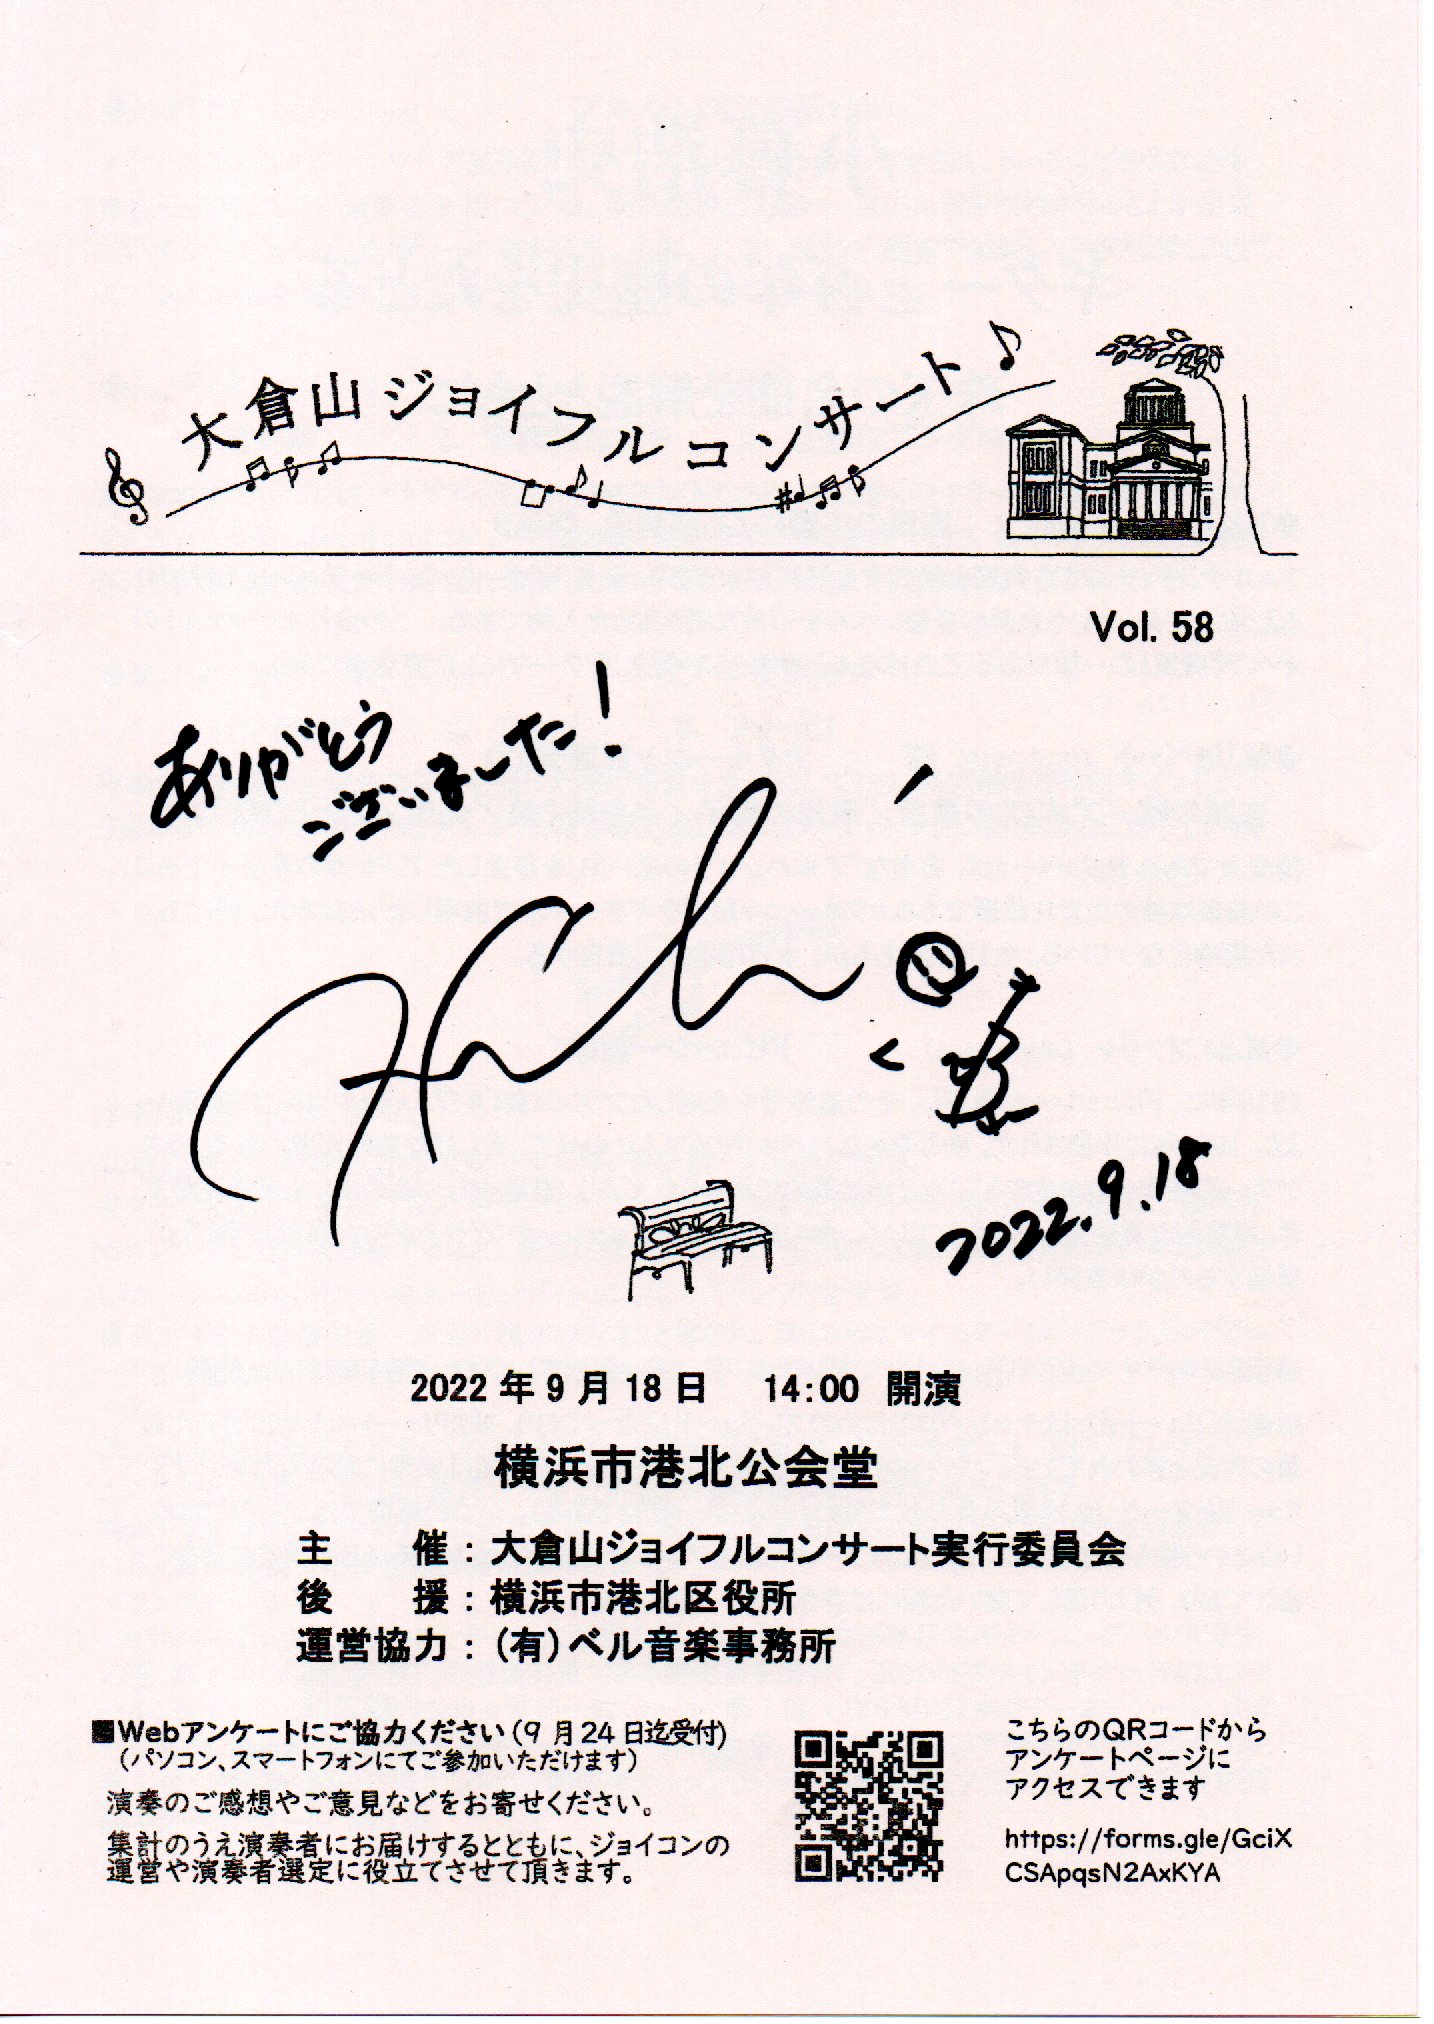 大倉山ジョイフルコンサート
Vol. 58
ありがとう
ございました!
2022.9.18
2022年9月18日 14:00 開演
横浜市港北公会堂
主 催:大倉山ジョイフルコンサート実行委員会
後 援:横浜市港北区役所
運営協力:(有)ベル音楽事務所
■Webアンケートにご協力ください(9月24日迄受付)
(パソコン、スマートフォンにてご参加いただけます)
演奏のご感想やご意見などをお寄せください。
集計のうえ演奏者にお届けするとともに、ジョイコンの
運営や演奏者選定に役立てさせて頂きます。
こちらのQRコードから
アンケートページに
アクセスできます
https://forms.gle/GciX
CSApqsN2AxKYA